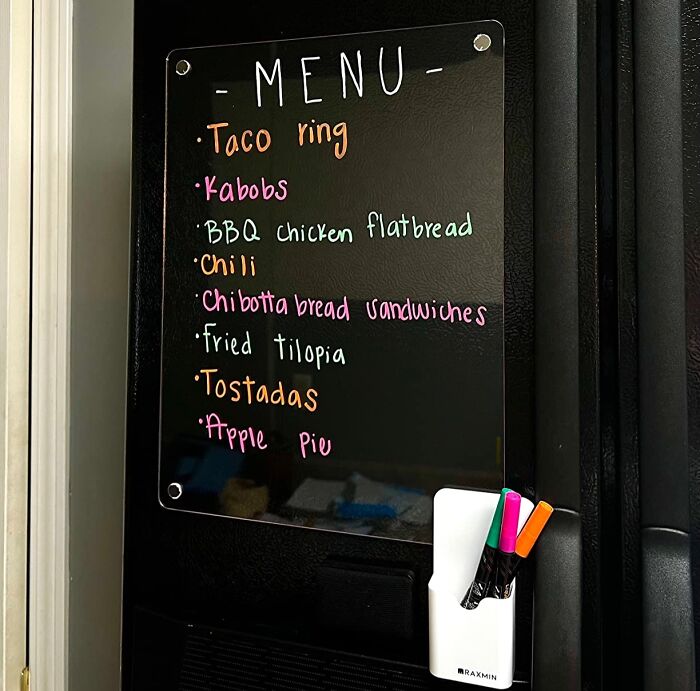 - MENU -
·Taco ring
·Kabobs
·BBQ chicken flatbread
·Chili
·Chibotta bread sandwiches
·Fried tilopia
·Tostadas
·Apple Pie
RAXMIN